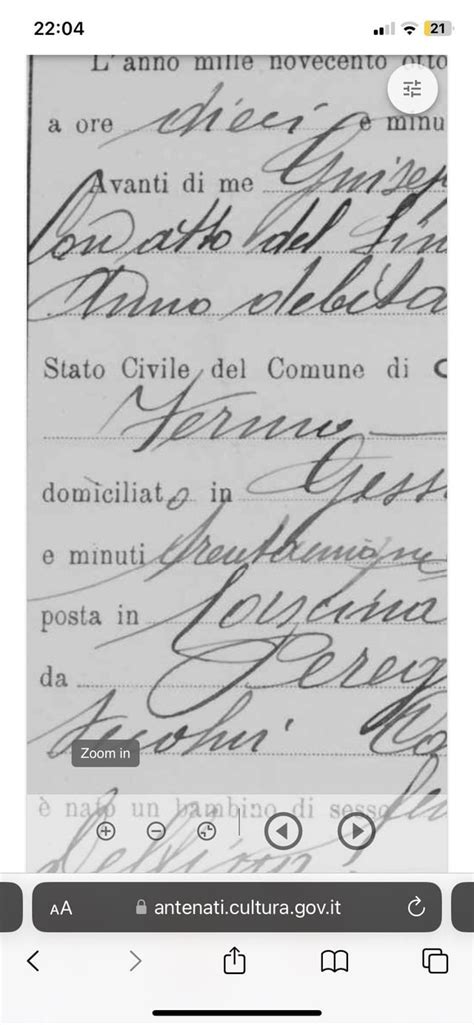 22:04
21
L'anno mille novecento otto
a ore dieci e minu
Avanti di me Guisep
Con atto del Sin
Anno debita
Stato Civile del Comune di
Fermo
domiciliato in Gess
e minuti trentacinque
posta in Cascina
da Pereg
Ca
è nato un bambino di sesso
Zoom in
AA
antenati.cultura.gov.it